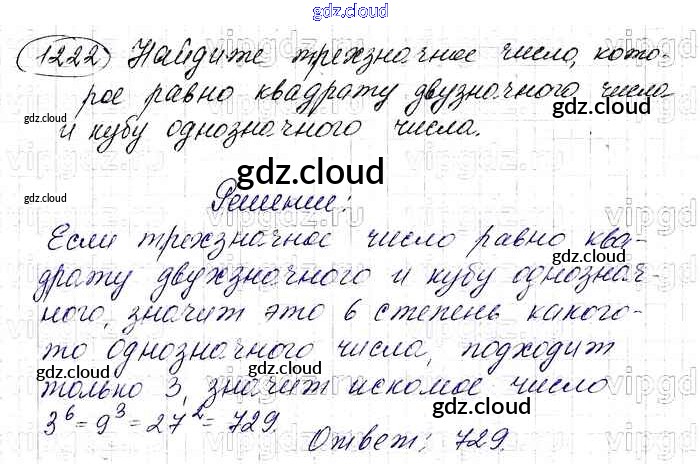 gdz.cloud
1222) Найдите трехзначное число, кото-
рое равно квадрату двузначного числа
и кубу однозначного числа.
gdz.cloud
gdz.cloud
gdz.cloud
gdz.cloud
Решение:
Если трехзначное число равно ква-
драту двухзначного и кубу однознач-
ного, значит это 6 степень какого-
то однозначного числа, подходит
только 3, значит искомое число
3⁶ = 9³ = 27² = 729.
Ответ: 729.
gdz.cloud
gdz.cloud
gdz.cloud
gdz.cloud
gdz.cloud